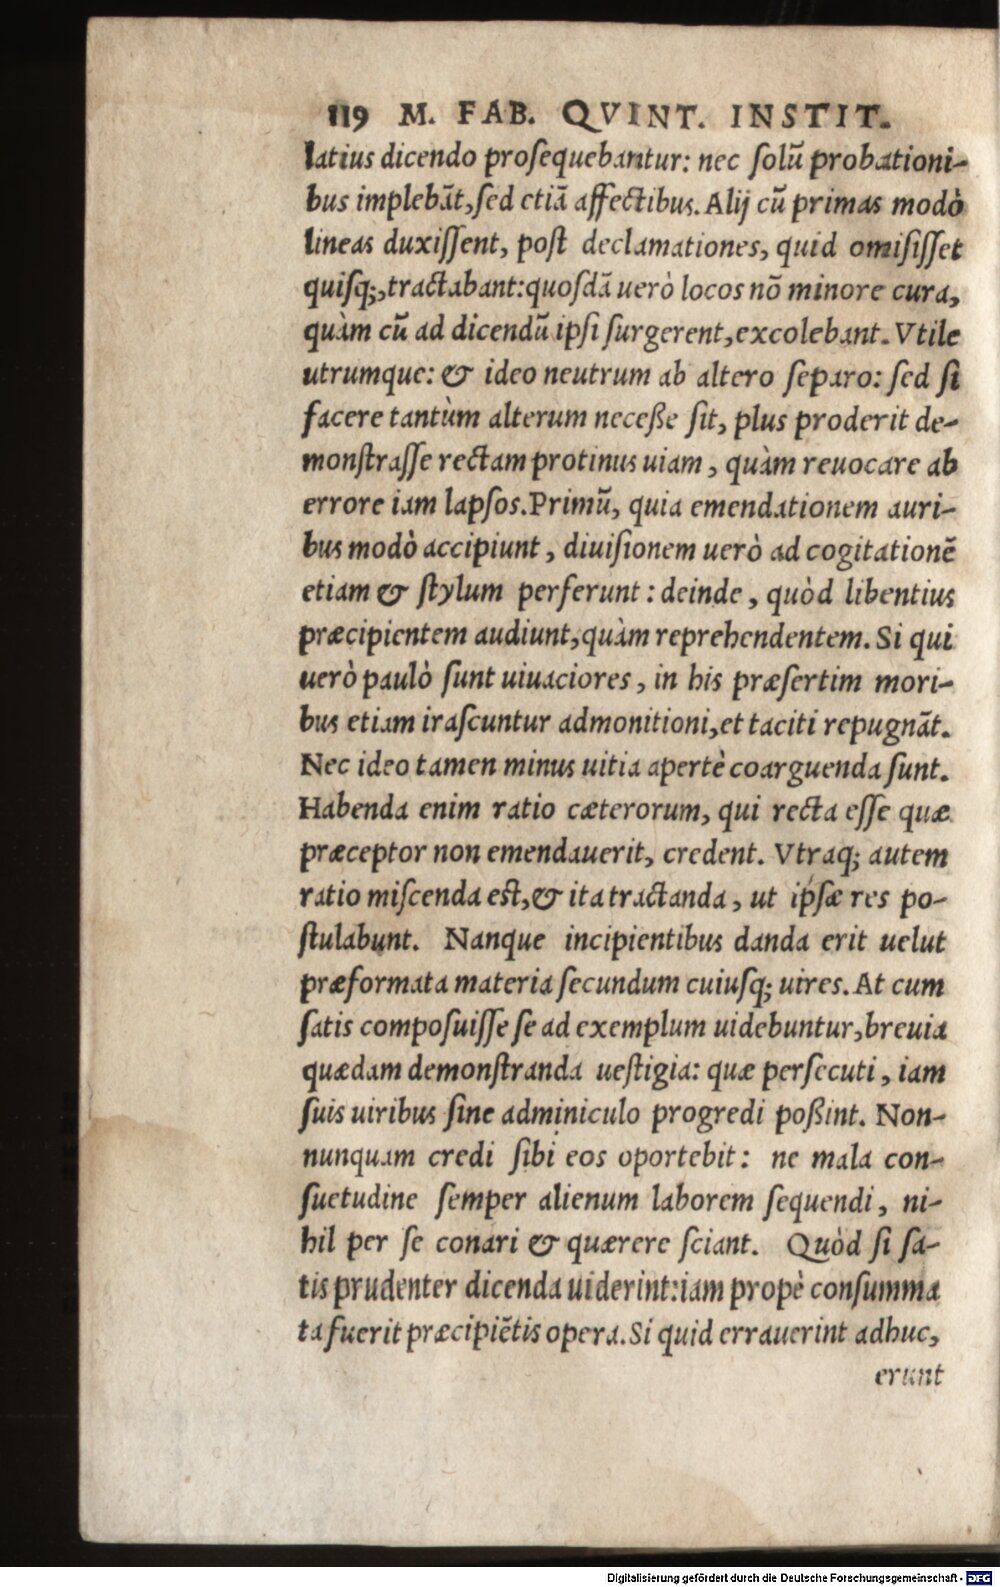 119 M. FAB. QVINT. INSTIT.
latius dicendo proſequebantur: nec ſolũ probationi-
bus implebãt, ſed etiã affectibus. Alij cũ primas modò
lineas duxiſſent, poſt declamationes, quid omiſiſſet
quiſq;, tractabant: quoſdã uerò locos nõ minore cura,
quàm cũ ad dicendũ ipſi ſurgerent, excolebant. Vtile
utrumque: & ideo neutrum ab altero ſeparo: ſed ſi
facere tantùm alterum neceße ſit, plus proderit de-
monſtraſſe rectam protinus uiam, quàm reuocare ab
errore iam lapſos. Primũ, quia emendationem auri-
bus modò accipiunt, diuiſionem uerò ad cogitationẽ
etiam & ſtylum perferunt: deinde, quòd libentius
præcipientem audiunt, quàm reprehendentem. Si qui
uerò paulò ſunt uiuaciores, in his præſertim mori-
bus etiam iraſcuntur admonitioni, et taciti repugnãt.
Nec ideo tamen minus uitia apertè coarguenda ſunt.
Habenda enim ratio cæterorum, qui recta eſſe quæ
præceptor non emendauerit, credent. Vtraq; autem
ratio miſcenda eſt, & ita tractanda, ut ipſæ res po-
ſtulabunt. Nanque incipientibus danda erit uelut
præformata materia ſecundum cuiuſq; uires. At cum
ſatis compoſuiſſe ſe ad exemplum uidebuntur, breuia
quædam demonſtranda ueſtigia: quæ perſecuti, iam
ſuis uiribus ſine adminiculo progredi poßint. Non-
nunquam credi ſibi eos oportebit: ne mala con-
ſuetudine ſemper alienum laborem ſequendi, ni-
hil per ſe conari & quærere ſciant. Quòd ſi ſa-
tis prudenter dicenda uiderint: iam propè conſumma
ta fuerit præcipiẽtis opera. Si quid errauerint adhuc,
erunt
Digitalisierung gefördert durch die Deutsche Forschungsgemeinschaft - DFG